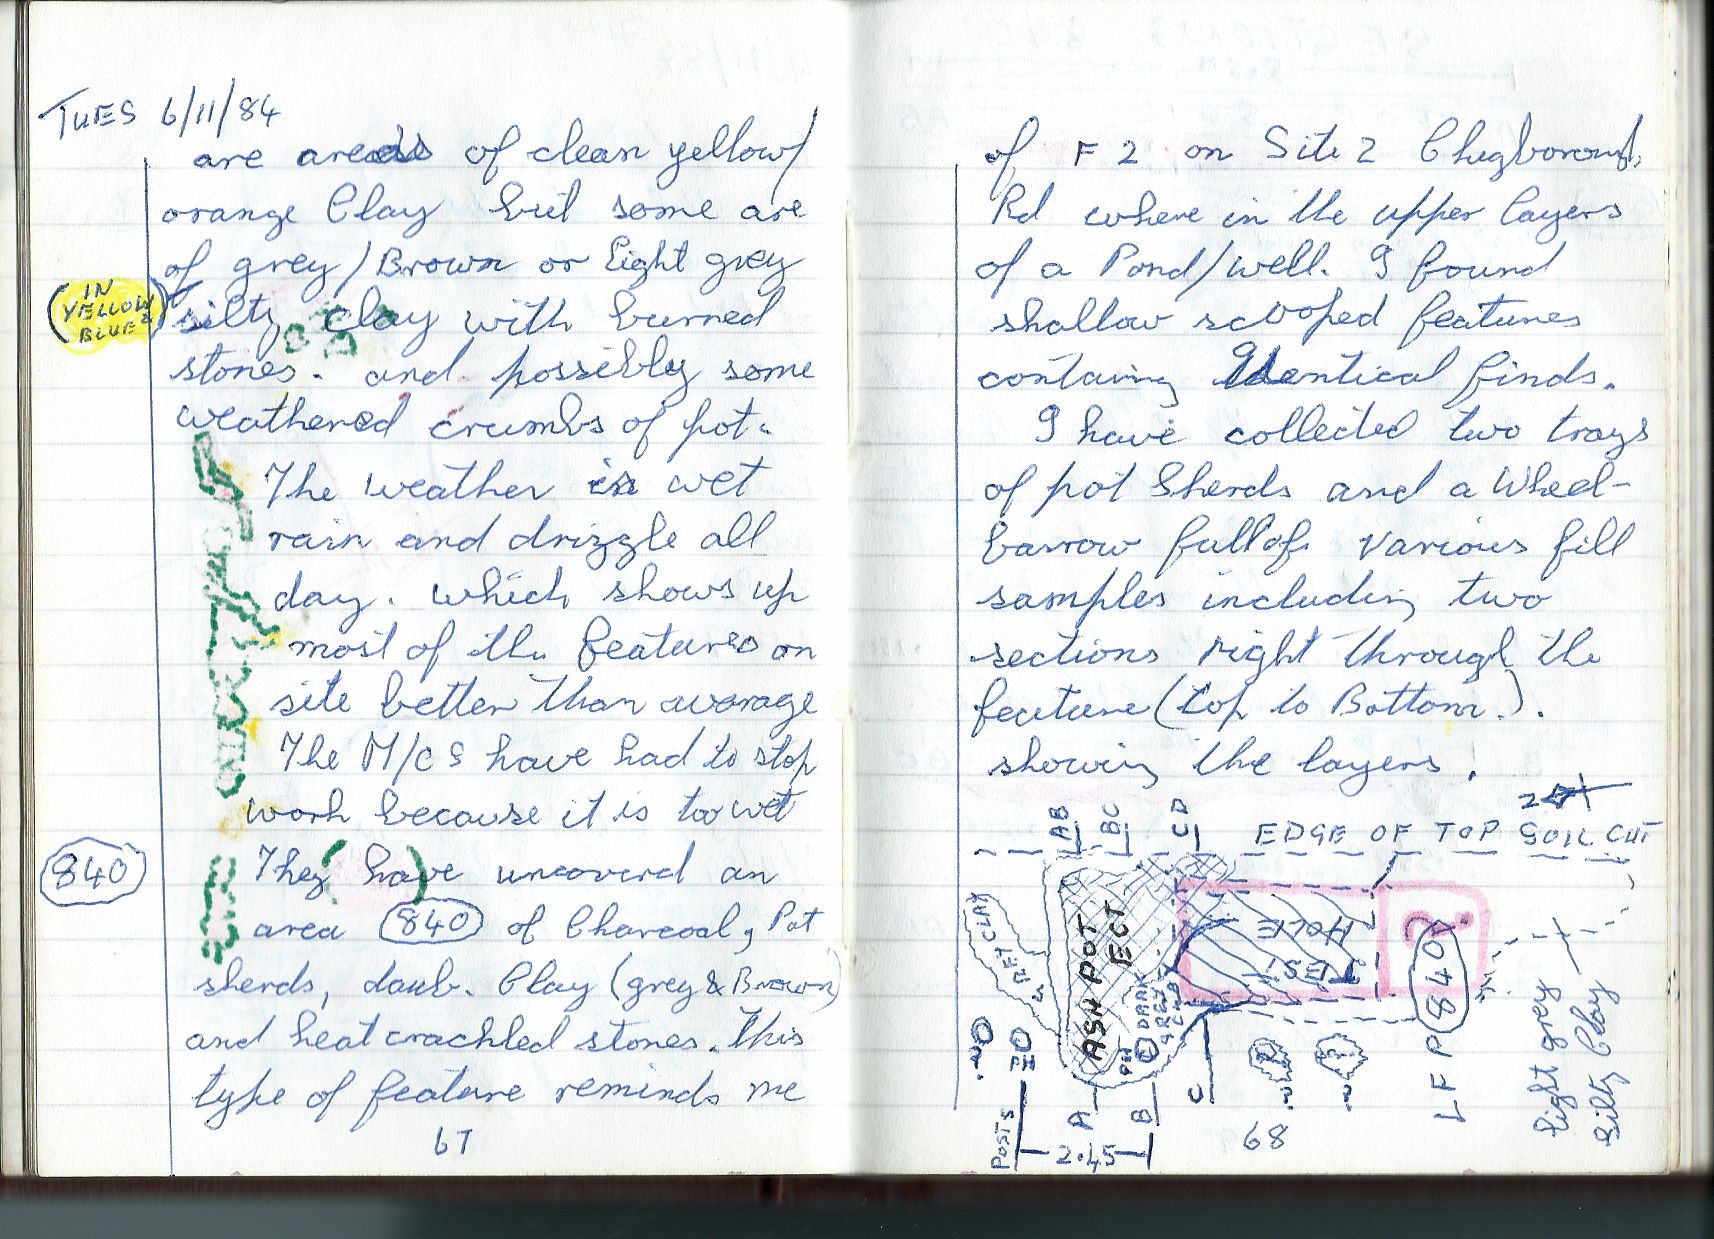 TUES 6/11/84
are areas of clean yellow/
orange Clay but some are
of grey/Brown or light grey
(IN
YELLOW &
BLUE)
silty clay with burned
stones. and possibly some
weathered crumbs of pot.
The weather is wet
rain and drizzle all
day. which shows up
most of the features on
site better than avarage
The M/CS have had to stop
work because it is too wet
840
They (have) uncoverd an
area 840 of Charcoal, Pot
sherds, daub. Clay (grey & Brown)
and heat crackled stones. This
type of feature reminds me
67
of F2 on Site 2
Rd where in the upper layers
of a Pond/well. I found
shallow scooped features
containg Identical finds.
I have collected two trays
of pot Sherds and a Wheel-
barrow full of various fill
samples including two
sections right through the
feature (top to Bottom.).
showing the layers.
AB
BC
CD
EDGE OF TOP SOIL CUT
GREY CLAY
ASH POT
ECT
TEST
HOLE
?
840
LFP
POT
DARK
GREY
light grey
silty Clay
POSTS
A
B
C
2.45
68